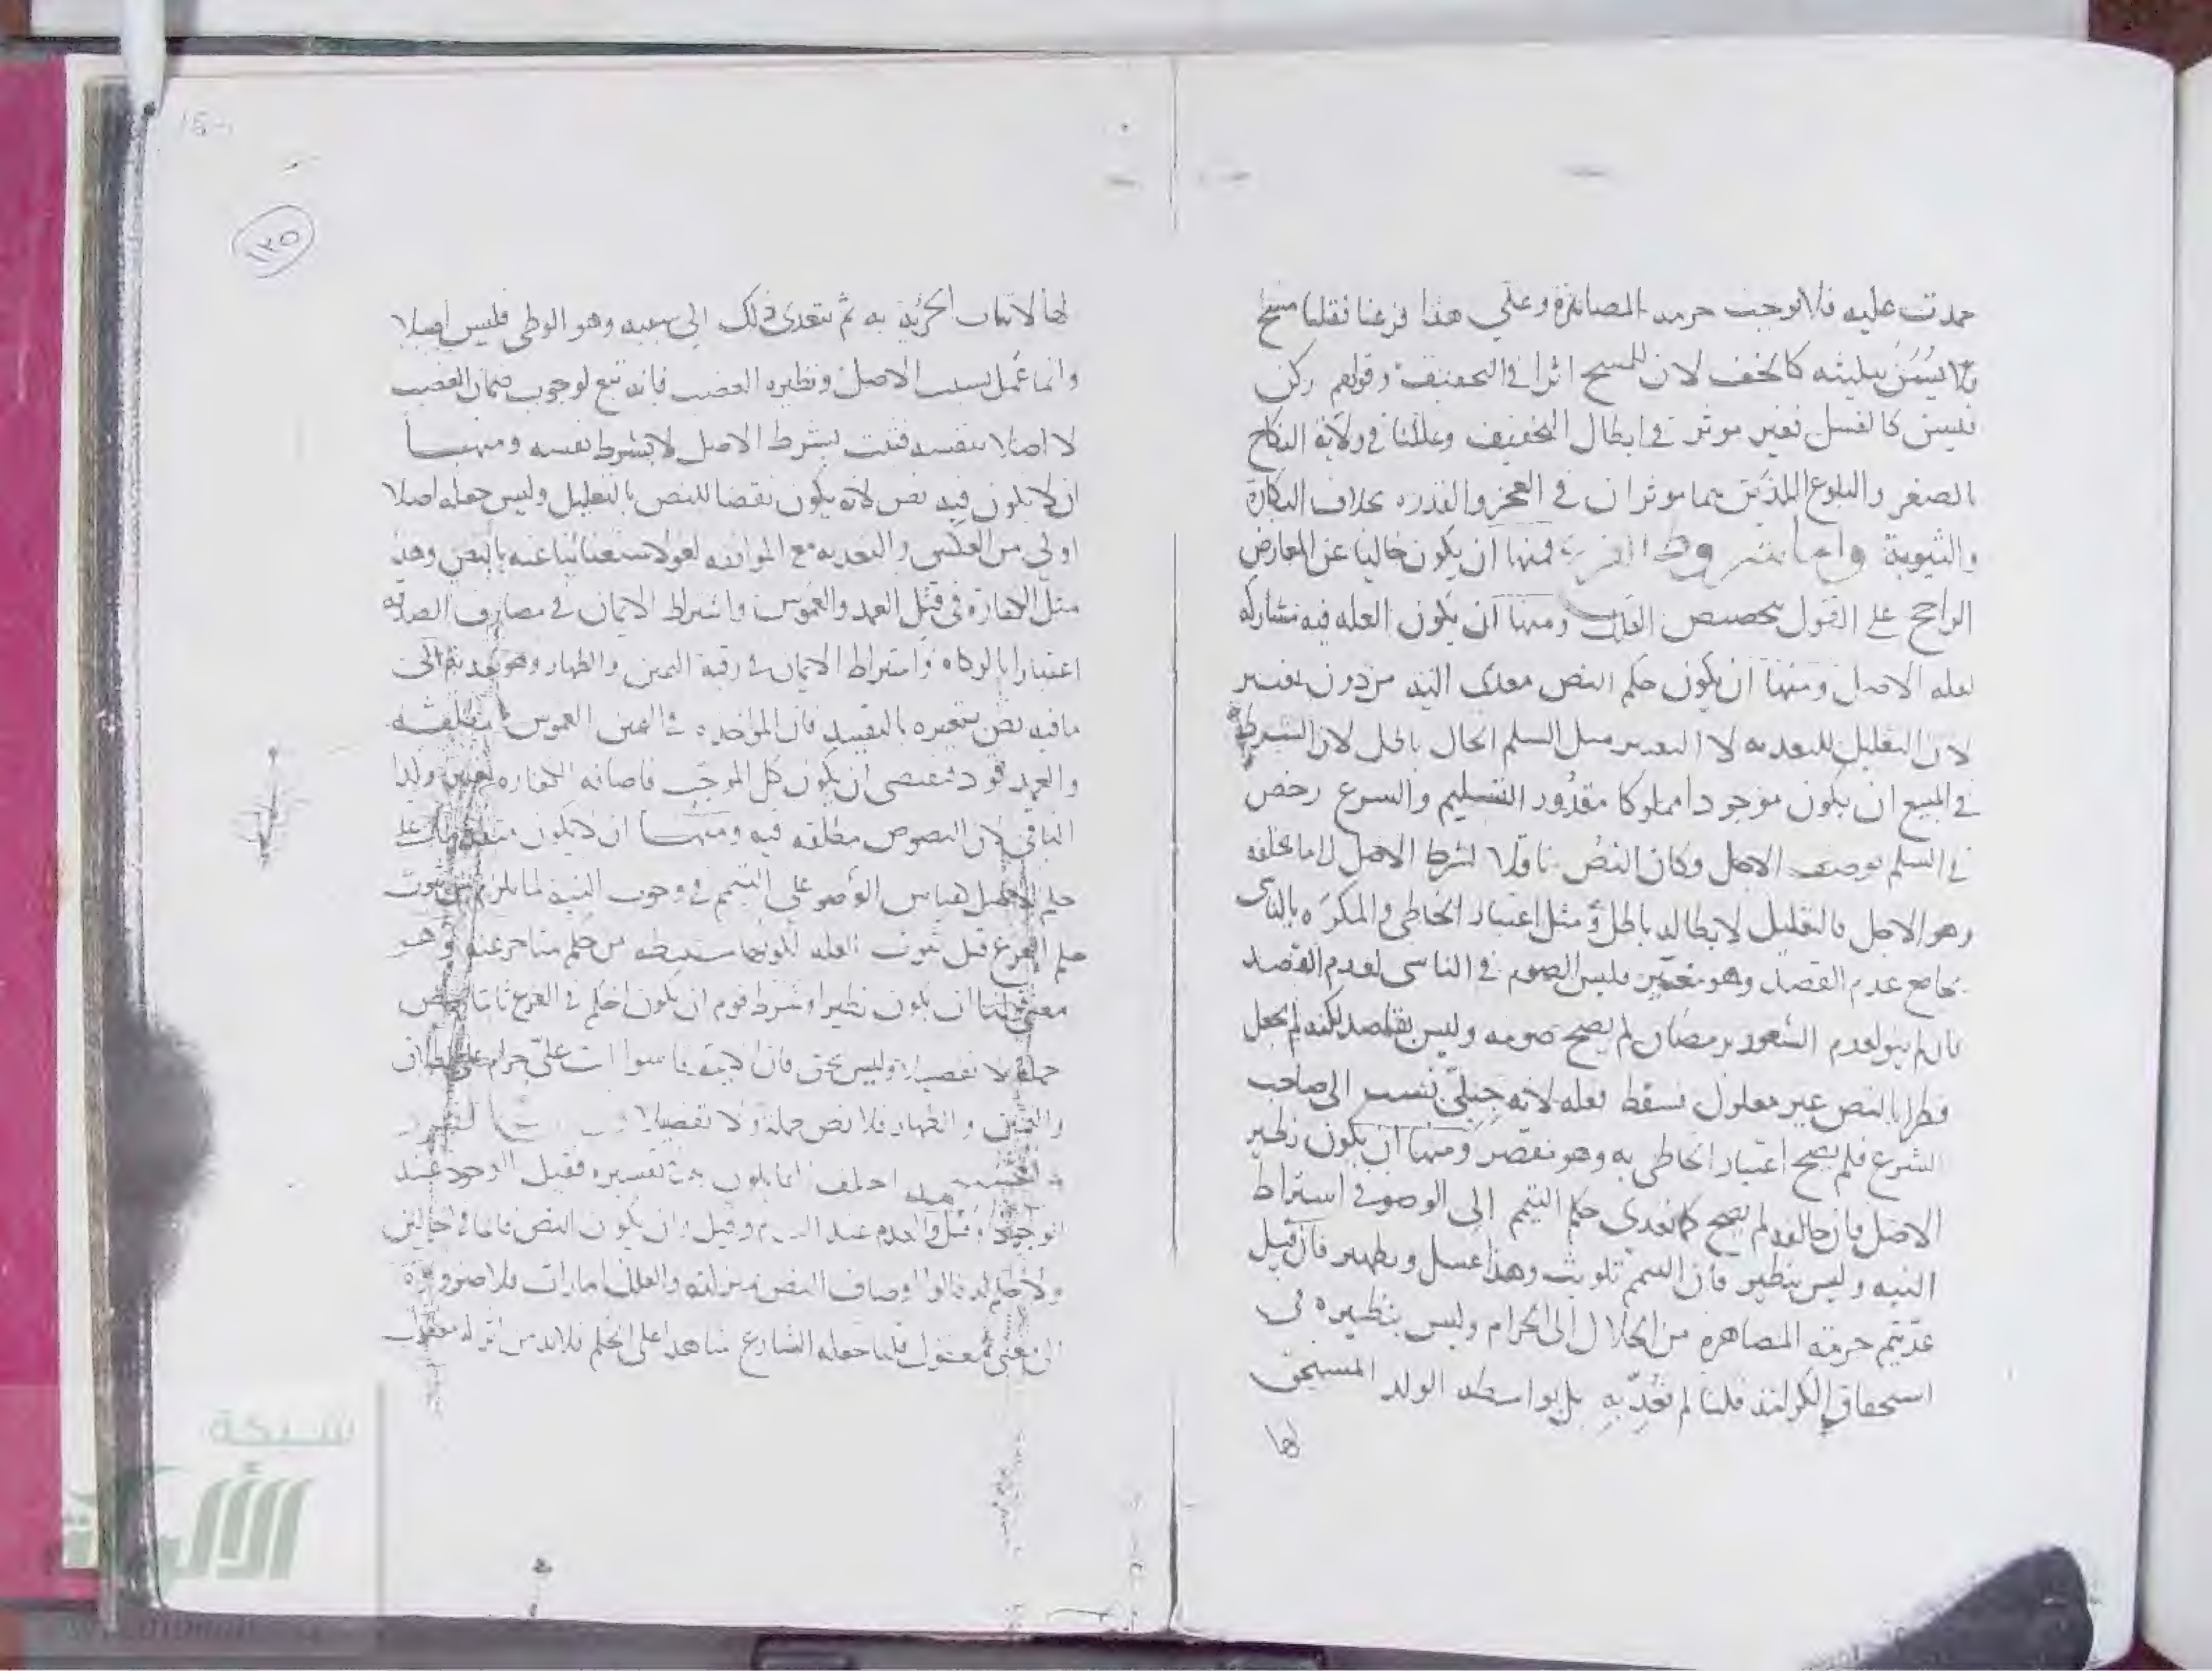 حمدت عليه فلا توجب حرمة المصاهرة وعلى هذا فرعنا فقلنا مسح
فلا يسن تثليثه كالخف لان للمسح اثرا في التخفيف وقولهم ركن
فليسن كالغسل فغير موثر في ابطال التخفيف وعللنا في ولاية النكاح
بالصغر والبلوغ اللذين هما موثران في العجز والقدرة بخلاف البكارة
والثيوبة واما شروط الفرع فمنها ان يكون خاليا عن المعارض
الراجح على القول بتخصيص العلة ومنها ان يكون العله فيه مشاركة
لعله الاصل ومنها ان يكون حكم النص معدى اليه من دون تغيير
لان التعليل للتعديه لا التغيير مثل السلم الحال باطل لان الشرط
في المبيع ان يكون موجودا مملوكا مقدور التسليم والشرع رخص
في السلم بوصف الاجل وكان النص ناقلا لشرط الاصل الى ما يخلفه
وهو الاجل فالتعليل لابطاله باطل ومثل اعتبار الخاطى والمكره بالناسى
بجامع عدم القصد وهو تغيير فليس الصوم في الناسى لعدم القصد
فان لم ينو لعدم الشعور برمضان لم يصح صومه وليس بقاصد لكنه لم يجعل
فطرا بالنص غير معلول فسقط فعله لانه جبلي نسب الى صاحب
الشرع فلم يصح اعتبار الخاطى به وهو مقصر ومنها ان يكون نظير
الاصل فان خالفه لم يصح كما تعدى حكم التيمم الى الوضو في اشتراط
النيه وليس بنظير فان التيمم تلويث وهذا غسل وتطهير فان قيل
عديتم حرمة المصاهرة من الحلال الى الحرام وليس بنظيره في
استحقاق الكرامة قلنا لم نعد به بل بواسطة الولد المستحق
لها
١٣٥
لها لاثبات الجزئية به ثم تتعدى ذلك الى سببه وهو الوطى فليس اصلا
وانما عمل بسبب الاصل ونظيره الغصب فانه تبع لوجوب ضمان الغصب
لا اصلا بنفسه فثبت بشرط الاصل لا بشرط نفسه ومنها
ان لا يكون فيه نص لانه يكون نقضا للنص بالتعليل وليس جعله اصلا
اولى من العكس والتعديه مع الموافقه لغو لاستغنائنا عنه بالنص وهذ
مثل الكفارة في قتل العمد والغموس واشتراط الايمان في مصارف الصدقه
اعتبارا بالزكاه واشتراط الايمان في رقبة اليمين والظهار وهو تعديه الى
ما فيه نص بتغييره بالتقييد فان المؤاخذه في اليمين الغموس مطلقه
والعمد قود فيقتضى ان يكون كل الموجب فاضافه الكفاره تغيير ولذا
الباقى لان النصوص مطلقه فيه ومنها ان لا يكون متقدما على
حكم الاصل كقياس الوضو على التيمم في وجوب النية لما يلزم من ثبوت
حكم الفرع قبل ثبوت العله لكونها مستنبطه من حكم متاخر عنه وهو
معنى قولنا ان يكون نظيرا وشرط قوم ان يكون الحكم في الفرع ثابتا بنص
جملة لا تفصيلا وليس بحق فان الايمة قاسوا انت علي حرام على الطلاق
واليمين والظهار فلا نص جملة ولا تفصيلا
اختلف انما يكون في تفسيره فقيل الوجود عند
الوجود وقيل والعدم عند العدم وقيل وان يكون النص قائما في الحالين
ولا حكم له قالوا اوصاف النص بمنزلته والعلل امارات فلا ضرورة
الى معنى معقول قلنا جعله الشارع شاهدا على الحكم فلا بد من اثر له معقول
شبكة
الألوكة